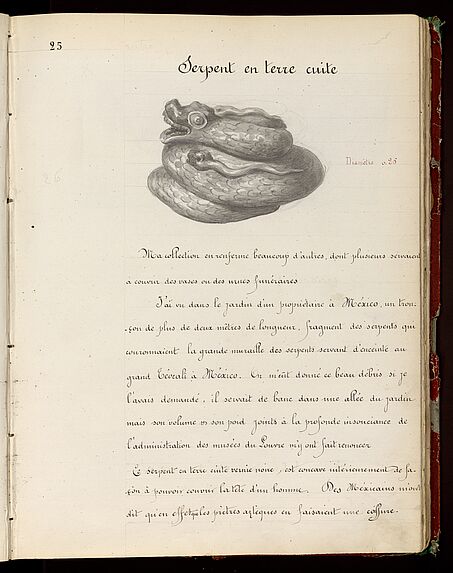 25
Serpent en terre cuite
Diamètre 0.25
Ma collection en renferme beaucoup d'autres, dont plusieurs servaient
à couvrir des vases ou des urnes funéraires
J'ai vu dans le jardin d'un propriétaire à México, un tron-
çon de plus de deux mètres de longueur, fragment des serpents qui
couronnaient la grande muraille des serpents servant d'enceinte au
grand Téocali à México. On m'eut donné ce beau débris si je
l'avais demandé, il servait de banc dans une allée du jardin
mais son volume et son poid joints à la profonde insouciance de
l'administration des musées du Louvre m'y ont fait renoncer
Ce serpent en terre cuite vernie noire, est concave intérieurement de fa-
çon à pouvoir couvrir la tête d'un homme. Des Méxicains m'ont
dit qu'en effet que les prêtres aztèques en faisaient une coiffure.